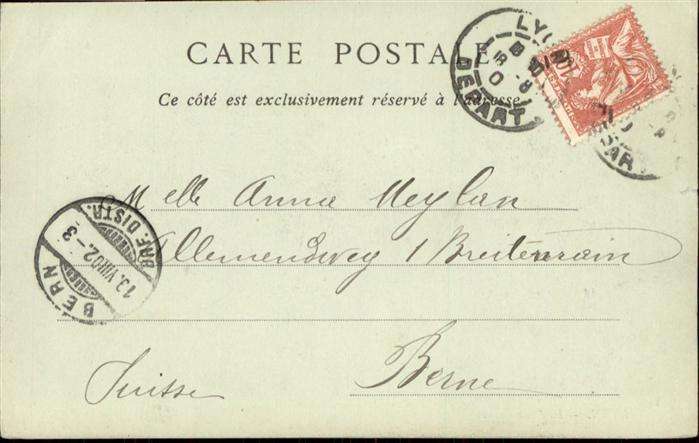 CARTE POSTALE
Ce côté est exclusivement réservé à l'adresse
LYON
DEPART
Melle Anna Meylan
Allemendweg 1 Breitenrain
Berne
Suisse
BERN
13.VIII.02.-3
BRF. DISTR.